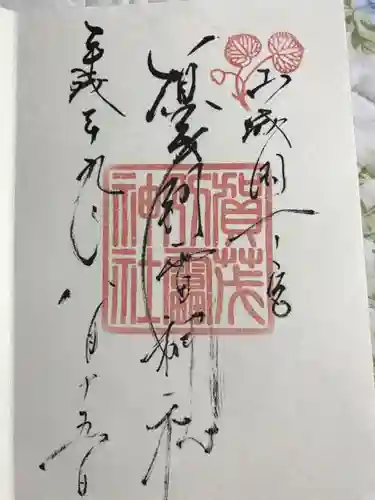 山城国一之宮
賀茂別雷神社
賀茂別雷神社
平成二九年八月十五日